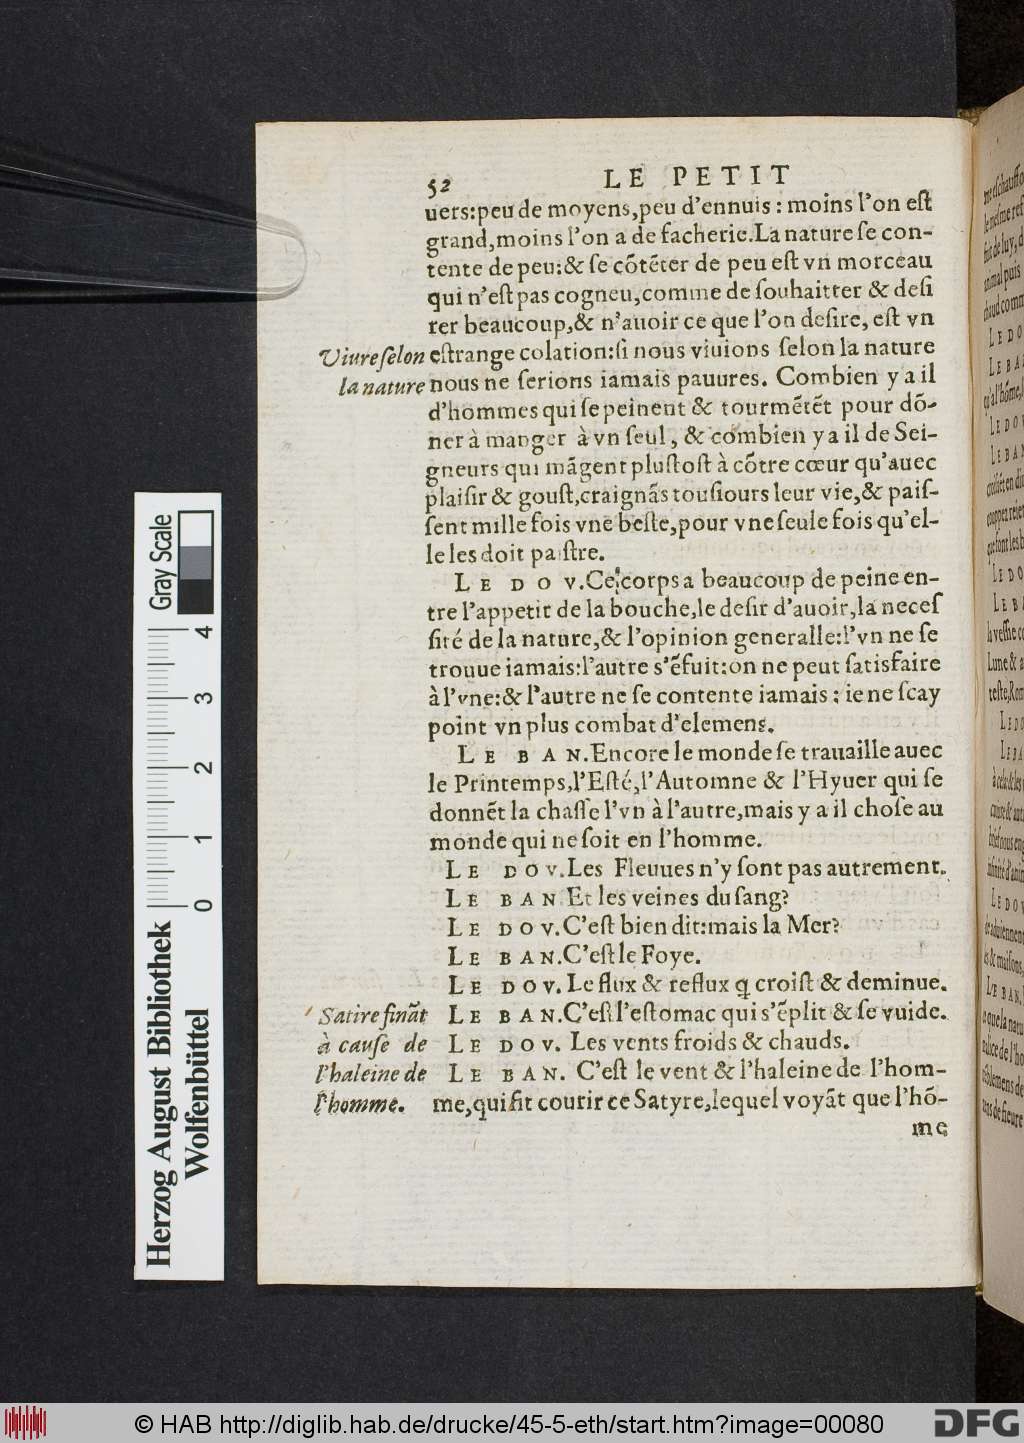 52 LE PETIT
uers:peu de moyens,peu d'ennuis : moins l'on eſt
grand,moins l'on a de facherie.La nature ſe con-
tente de peu:& ſe cõtẽter de peu eſt vn morceau
qui n'eſt pas cogneu,comme de ſouhaitter & deſi
rer beaucoup,& n'auoir ce que l'on deſire, eſt vn
Viure ſelon eſtrange colation:ſi nous viuions ſelon la nature
la nature nous ne ſerions iamais pauures. Combien y a il
d'hommes qui ſe peinent & tourmẽtẽt pour dõ-
ner à manger à vn ſeul, & combien y a il de Sei-
gneurs qui mãgent pluſtoſt à cõtre cœur qu'auec
plaiſir & gouſt,craignãs touſiours leur vie,& paiſ-
ſent mille fois vne beſte,pour vne ſeule fois qu'el-
le les doit paiſtre.
LE DOV.Ce corps a beaucoup de peine en-
tre l'appetit de la bouche,le deſir d'auoir,la neceſ
ſité de la nature,& l'opinion generalle:l'vn ne ſe
trouue iamais:l'autre s'ẽfuit:on ne peut ſatisfaire
à l'vne:& l'autre ne ſe contente iamais : ie ne ſcay
point vn plus combat d'elemens.
LE BAN.Encore le monde ſe trauaille auec
le Printemps,l'Eſté,l'Automne & l'Hyuer qui ſe
donnẽt la chaſſe l'vn à l'autre,mais y a il choſe au
monde qui ne ſoit en l'homme.
LE DOV.Les Fleuues n'y ſont pas autrement.
LE BAN.Et les veines du ſang?
LE DOV.C'eſt bien dit:mais la Mer?
LE BAN.C'eſt le Foye.
LE DOV. Le flux & reflux q croiſt & deminue.
Satire finãt LE BAN.C'eſt l'eſtomac qui s'ẽplit & ſe vuide.
à cauſe de LE DOV. Les vents froids & chauds.
l'haleine de LE BAN. C'eſt le vent & l'haleine de l'hom-
l'homme. me,qui fit courir ce Satyre,lequel voyãt que l'hõ-
me
Gray Scale
0 1 2 3 4
Herzog August Bibliothek
Wolfenbüttel
© HAB http://diglib.hab.de/drucke/45-5-eth/start.htm?image=00080
DFG